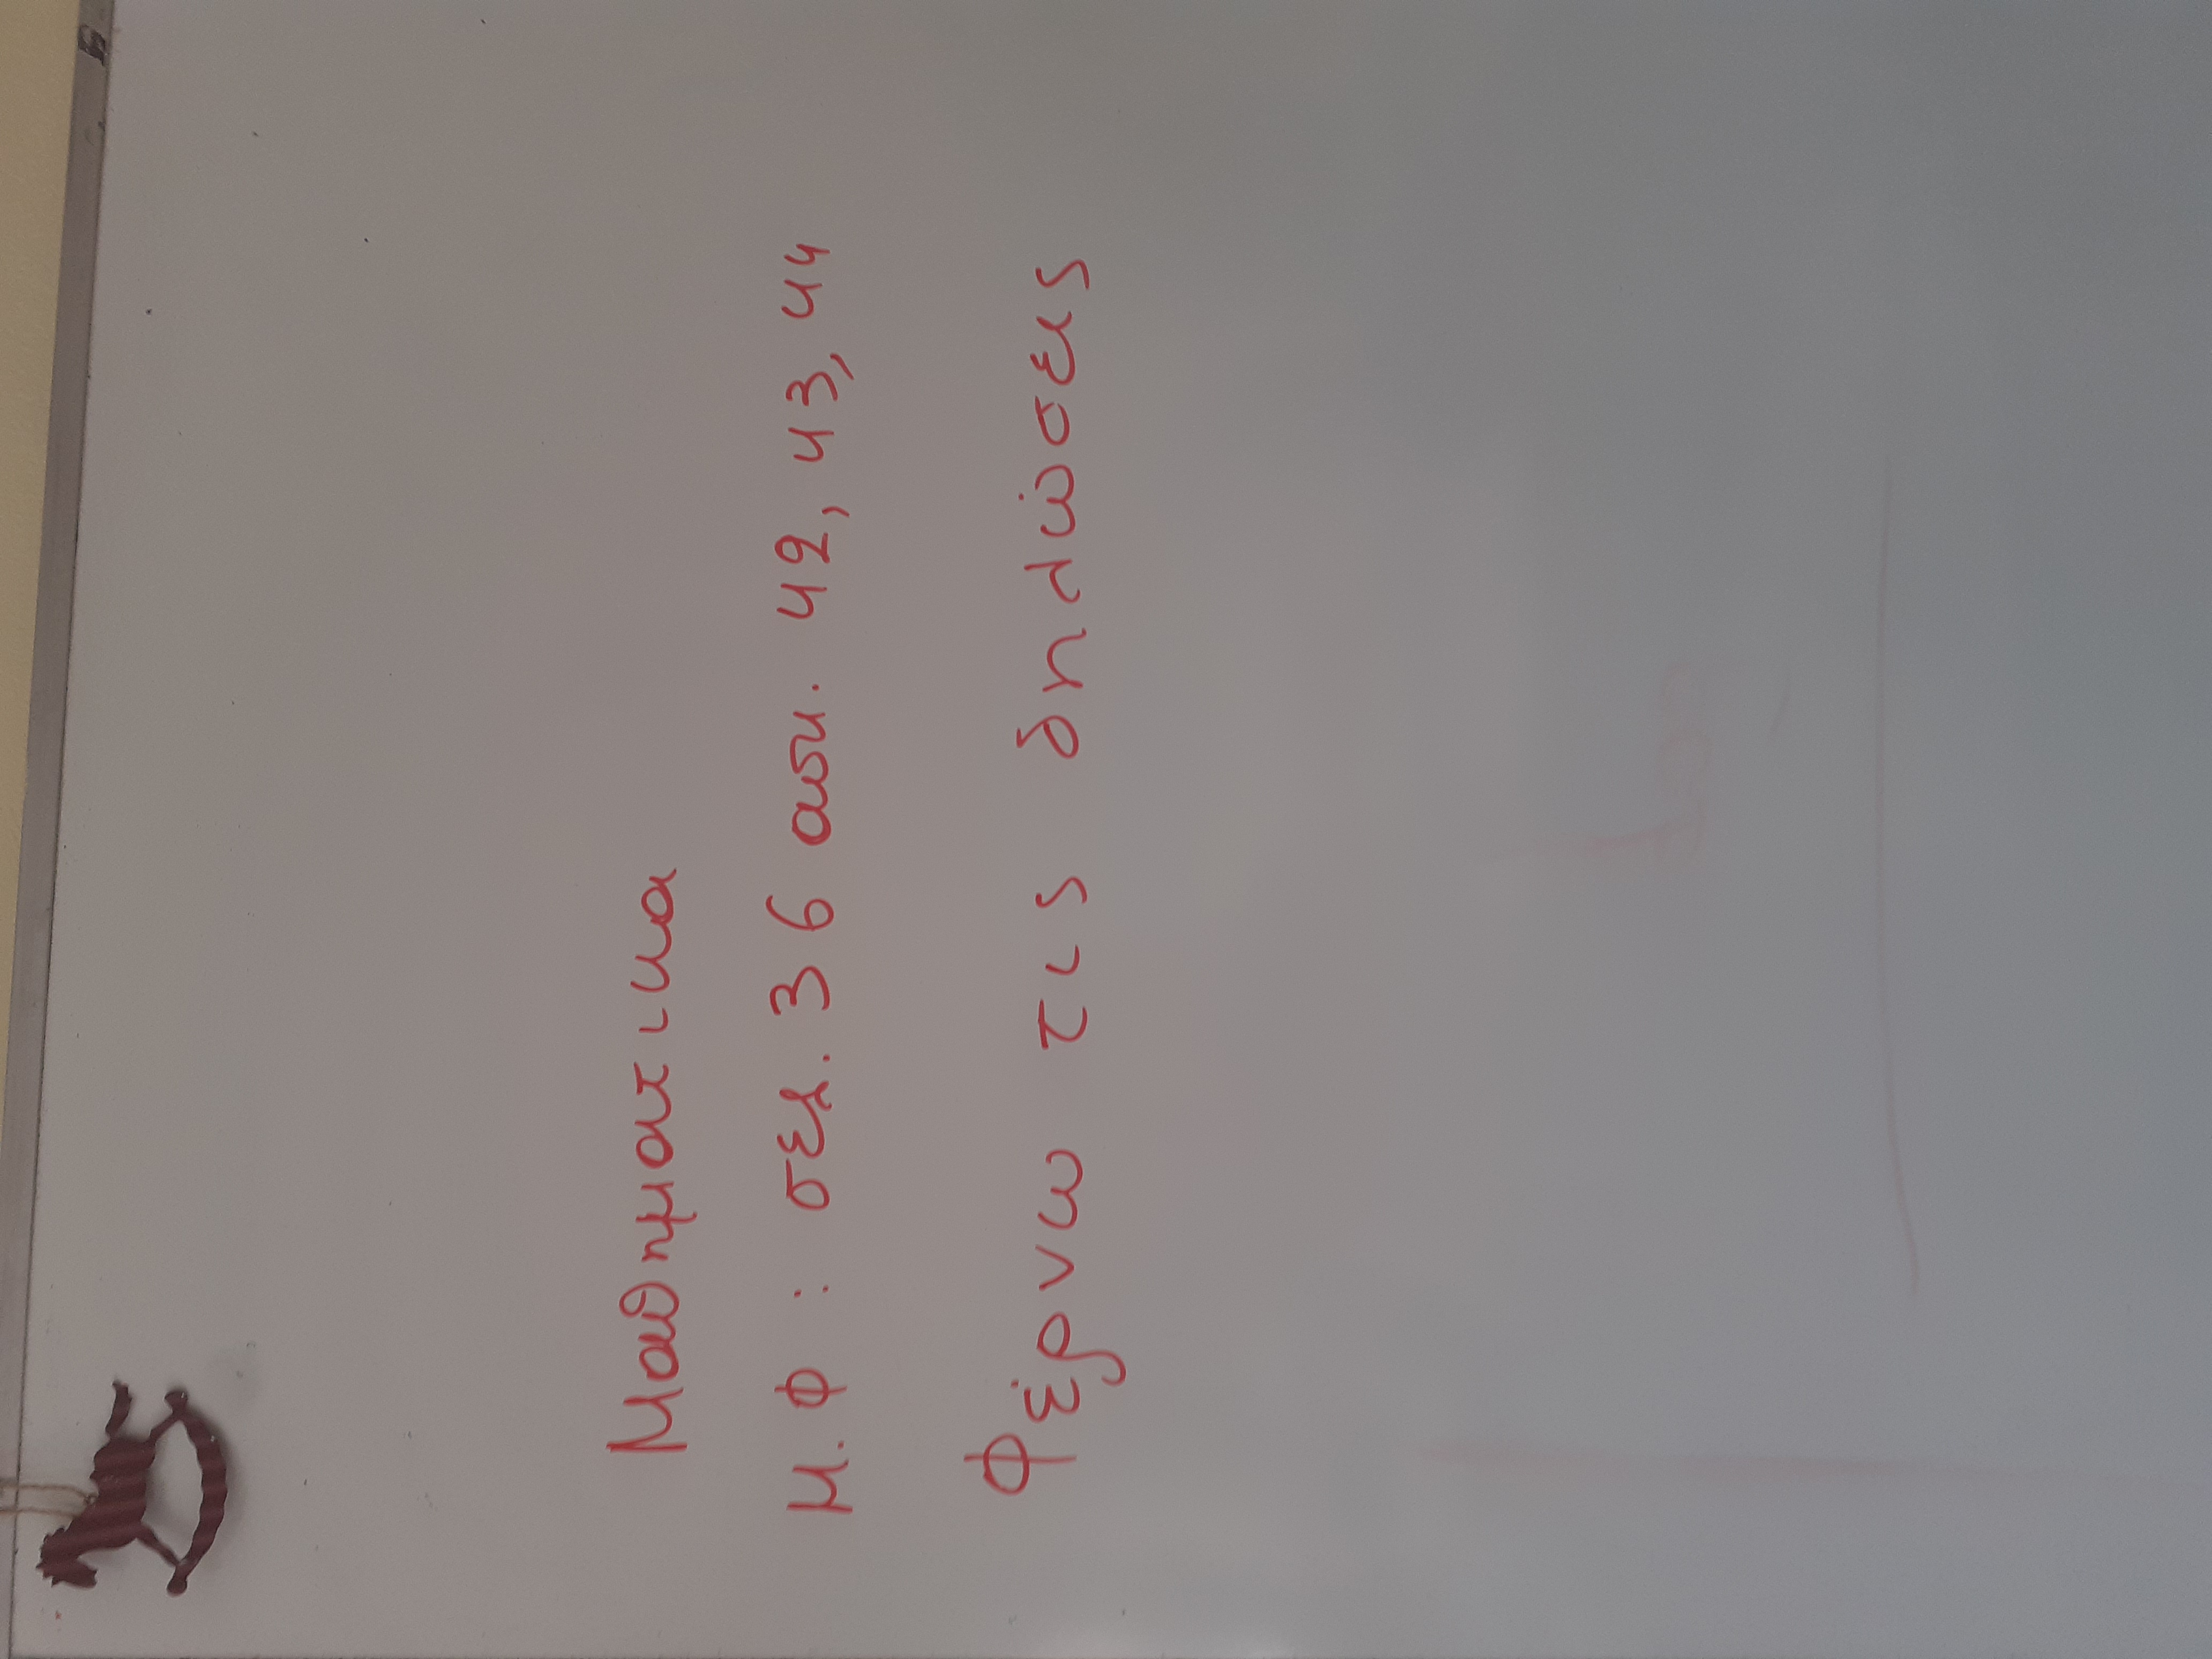 Μαθηματικα
Μ.Φ : σελ. 36 ασκ. 42, 43, 44
Φέρνω τις δηλώσεις